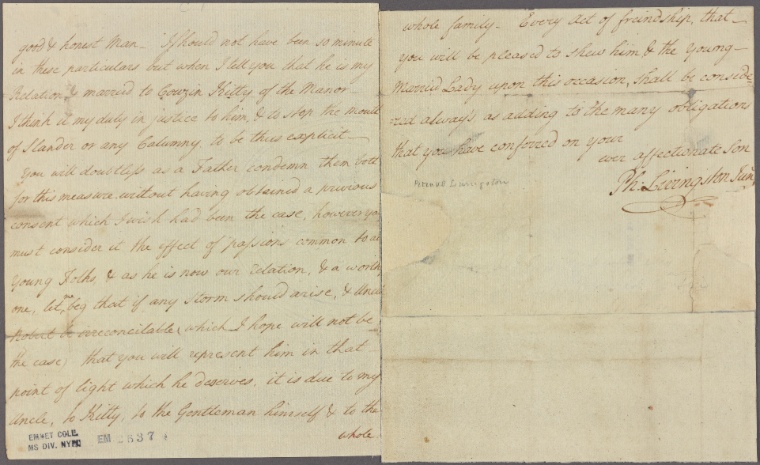 good & honest Man — I should not have been so minute
in these particulars but when I tell you that he is my
Relation, & married to Couzin Kitty of the Manor —
I think it my duty in justice to him, & to stop the mouth
of Slander or any Calumny, to be thus explicit —
You will doubtless as a Father condemn them both
for this measure, without having obtained a previous
consent which I wish had been the case, however you
must consider it the effect of passions common to all
Young Folks, & as he is now our relation, & a worthy
one, let me beg that if any storm should arise, & Uncle
Robert be irreconcilable (which I hope will not be
the case) that you will represent him in that
point of light which he deserves. it is due to my
Uncle, to Kitty, to the Gentleman himself & to the
whole
EMMET COLL.
MS DIV. NYPL
EM
whole family — Every act of freindship, that —
you will be pleased to shew him & the Young —
Married Lady upon this occasion, shall be conside-
red always as adding to the many obligations
that you have conferred on your
ever affectionate Son
Ph: Livingston Junr
Livingston